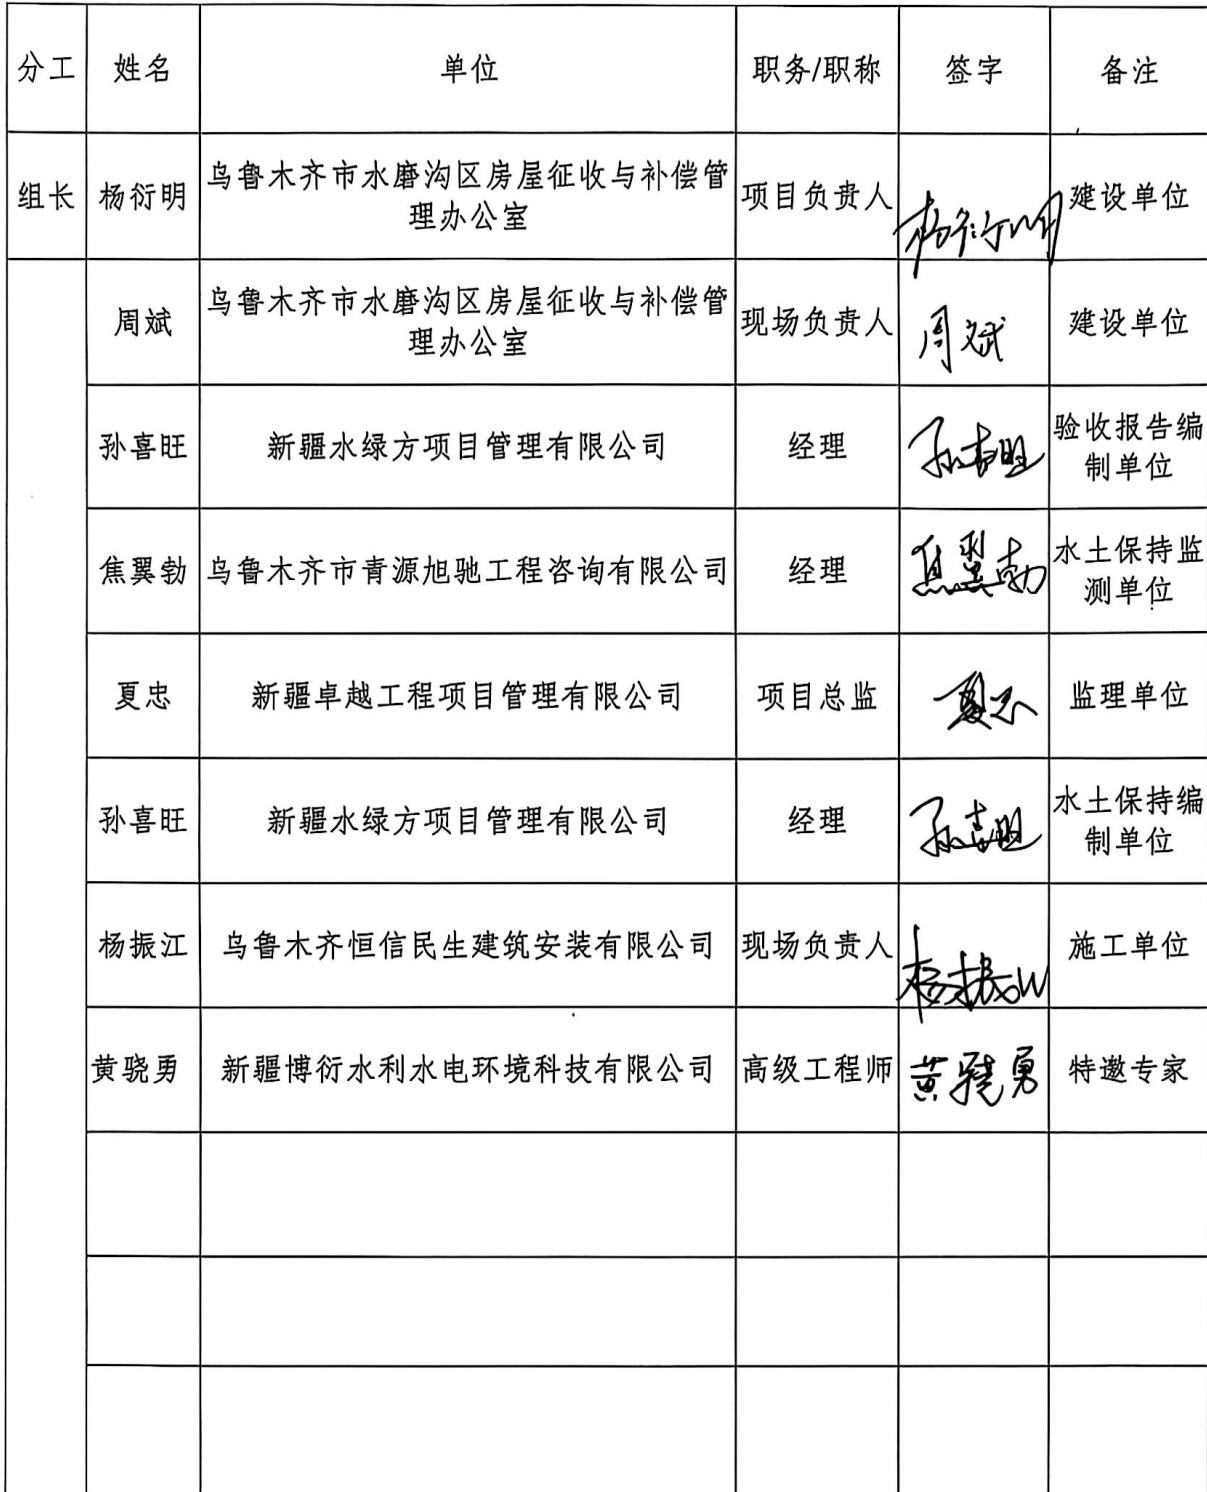 分工 姓名 单位 职务/职称 签字 备注
组长 杨衍明 乌鲁木齐市水磨沟区房屋征收与补偿管 项目负责人 杨衍明 建设单位
理办公室
周斌 乌鲁木齐市水磨沟区房屋征收与补偿管 现场负责人 周斌 建设单位
理办公室
孙喜旺 新疆水绿方项目管理有限公司 经理 孙喜旺 验收报告编
制单位
焦翼勃 乌鲁木齐市青源旭驰工程咨询有限公司 经理 焦翼勃 水土保持监
测单位
夏忠 新疆卓越工程项目管理有限公司 项目总监 夏忠 监理单位
孙喜旺 新疆水绿方项目管理有限公司 经理 孙喜旺 水土保持编
制单位
杨振江 乌鲁木齐恒信民生建筑安装有限公司 现场负责人 杨振江 施工单位
黄骁勇 新疆博衍水利水电环境科技有限公司 高级工程师 黄骁勇 特邀专家